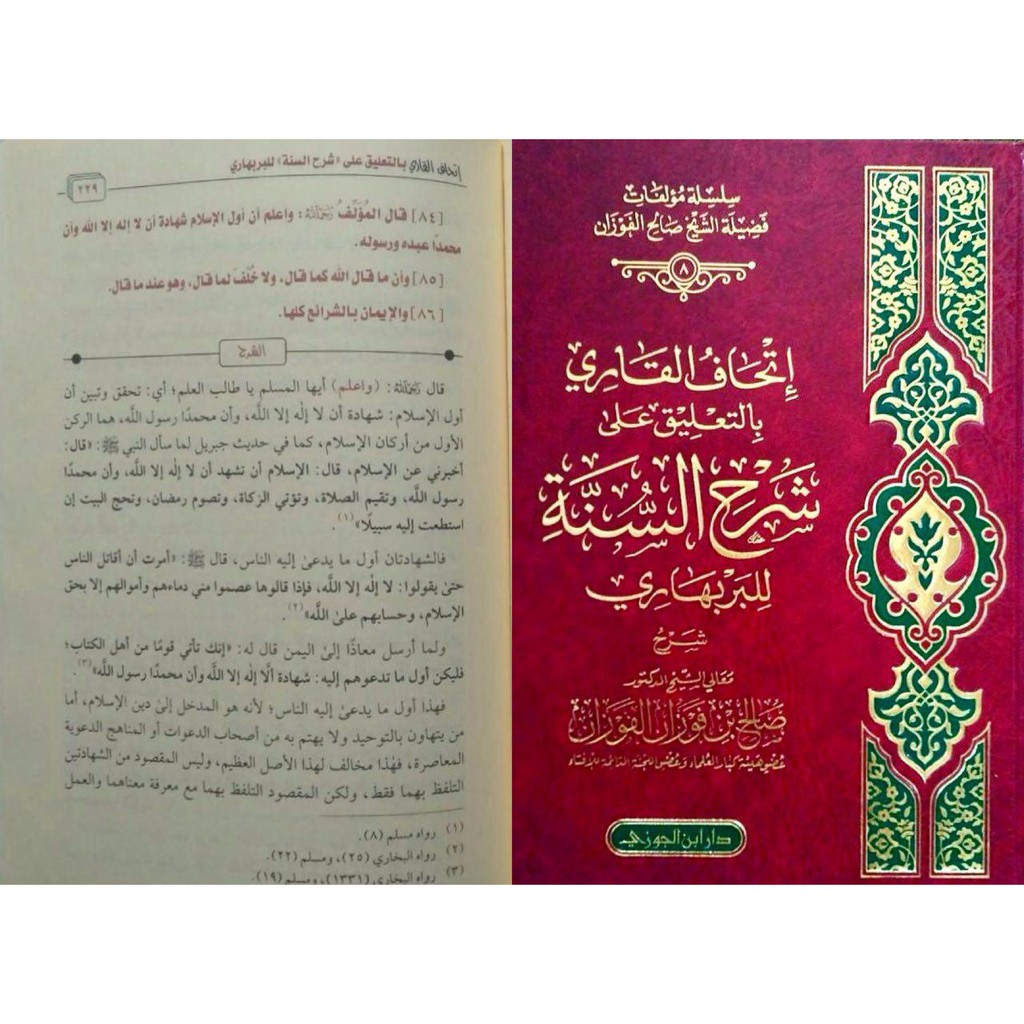 سلسلة مؤلفات
فضيلة الشيخ صالح الفوزان
٨
إتحاف القاري
بالتعليق على
شرح السنة
للبربهاري
شرح
معالي الشيخ الدكتور
صالح بن فوزان الفوزان
عضو هيئة كبار العلماء وعضو اللجنة الدائمة للإفتاء
دار ابن الجوزي
إتحاف القاري بالتعليق على «شرح السنة» للبربهاري
٢٢٩
[٨٤] قال المؤلف رحمه الله: واعلم أن أول الإسلام شهادة أن لا إله إلا الله وأن
محمدًا عبده ورسوله.
[٨٥] وأن ما قال الله كما قال، ولا خُلْفَ لما قال، وهو عند ما قال.
[٨٦] والإيمان بالشرائع كلها.
الشرح
قال رحمه الله: (واعلم) أيها المسلم يا طالب العلم؛ أي: تحقق وتبين أن
أول الإسلام: شهادة أن لا إله إلا الله، وأن محمدًا رسول الله، هما الركن
الأول من أركان الإسلام، كما في حديث جبريل لما سأل النبي ﷺ: «قال:
أخبرني عن الإسلام، قال: الإسلام أن تشهد أن لا إله إلا الله، وأن محمدًا
رسول الله، وتقيم الصلاة، وتؤتي الزكاة، وتصوم رمضان، وتحج البيت إن
استطعت إليه سبيلًا»(١).
فالشهادتان أول ما يدعى إليه الناس، قال ﷺ: «أمرت أن أقاتل الناس
حتى يقولوا: لا إله إلا الله، فإذا قالوها عصموا مني دماءهم وأموالهم إلا بحق
الإسلام، وحسابهم على الله»(٢).
ولما أرسل معاذًا إلى اليمن قال له: «إنك تأتي قومًا من أهل الكتاب؛
فليكن أول ما تدعوهم إليه: شهادة ألَّا إله إلا الله وأن محمدًا رسول الله»(٣).
فهذا أول ما يدعى إليه الناس؛ لأنه هو المدخل إلى دين الإسلام، أما
من يتهاون بالتوحيد ولا يهتم به من أصحاب الدعوات أو المناهج الدعوية
المعاصرة، فهذا مخالف لهذا الأصل العظيم، وليس المقصود من الشهادتين
التلفظ بهما فقط، ولكن المقصود التلفظ بهما مع معرفة معناهما والعمل
(١) رواه مسلم (٨).
(٢) رواه البخاري (٢٥)، ومسلم (٢٢).
(٣) رواه البخاري (١٣٣١)، ومسلم (١٩).